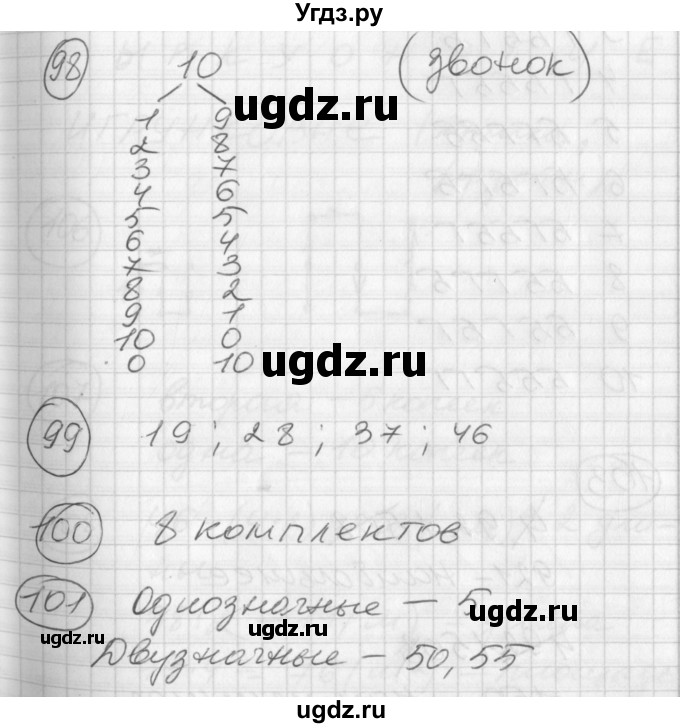 Угдз.ру
98 10 (звонок)
1 9
2 8
3 7
4 6
5 5
6 4
7 3
8 2
9 1
10 0
0 10
ugdz.ru
ugdz.ru
99 19 ; 28 ; 37 ; 46
100 8 комплектов
ugdz.ru
101 Однозначные — 5
ugdz.ru ugdz.ru
Двузначные — 50, 55
Угдз.ру